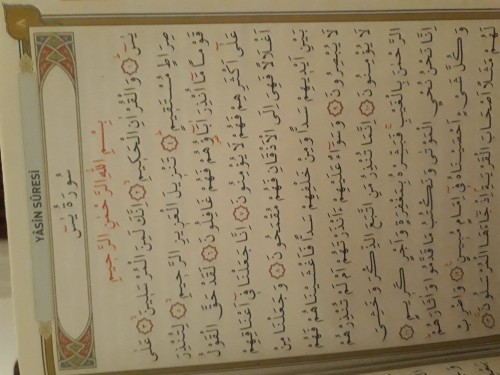 YÂSÎN SÛRESİ
سُورَةُ يٰسٓ
بِسْمِ اللّٰهِ الرَّحْمٰنِ الرَّحِيمِ
يٰسٓ ﴿١﴾ وَالْقُرْاٰنِ الْحَكِيمِ ﴿٢﴾ اِنَّكَ لَمِنَ الْمُرْسَلِينَ ﴿٣﴾ عَلٰى
صِرَاطٍ مُسْتَقِيمٍ ﴿٤﴾ تَنْزِيلَ الْعَزِيزِ الرَّحِيمِ ﴿٥﴾ لِتُنْذِرَ
قَوْمًا مَٓا اُنْذِرَ اٰبَٓاؤُهُمْ فَهُمْ غَافِلُونَ ﴿٦﴾ لَقَدْ حَقَّ الْقَوْلُ
عَلٰٓى اَكْثَرِهِمْ فَهُمْ لَا يُؤْمِنُونَ ﴿٧﴾ اِنَّا جَعَلْنَا فِٓي اَعْنَاقِهِمْ
اَغْلَالًا فَهِيَ اِلَى الْاَذْقَانِ فَهُمْ مُقْمَحُونَ ﴿٨﴾ وَجَعَلْنَا مِنْ
بَيْنِ اَيْدِيهِمْ سَدًّا وَمِنْ خَلْفِهِمْ سَدًّا فَاَغْشَيْنَاهُمْ فَهُمْ
لَا يُبْصِرُونَ ﴿٩﴾ وَسَوَٓاءٌ عَلَيْهِمْ ءَاَنْذَرْتَهُمْ اَمْ لَمْ تُنْذِرْهُمْ
لَا يُؤْمِنُونَ ﴿١٠﴾ اِنَّمَا تُنْذِرُ مَنِ اتَّبَعَ الذِّكْرَ وَخَشِيَ
الرَّحْمٰنَ بِالْغَيْبِ فَبَشِّرْهُ بِمَغْفِرَةٍ وَاَجْرٍ كَرِيمٍ ﴿١١﴾
اِنَّا نَحْنُ نُحْيِ الْمَوْتٰى وَنَكْتُبُ مَا قَدَّمُوا وَاٰثَارَهُمْ
وَكُلَّ شَيْءٍ اَحْصَيْنَاهُ فِٓي اِمَامٍ مُبِينٍ ﴿١٢﴾ وَاضْرِبْ
لَهُمْ مَثَلًا اَصْحَابَ الْقَرْيَةِ اِذْ جَٓاءَهَا الْمُرْسَلُونَ ﴿١٣﴾